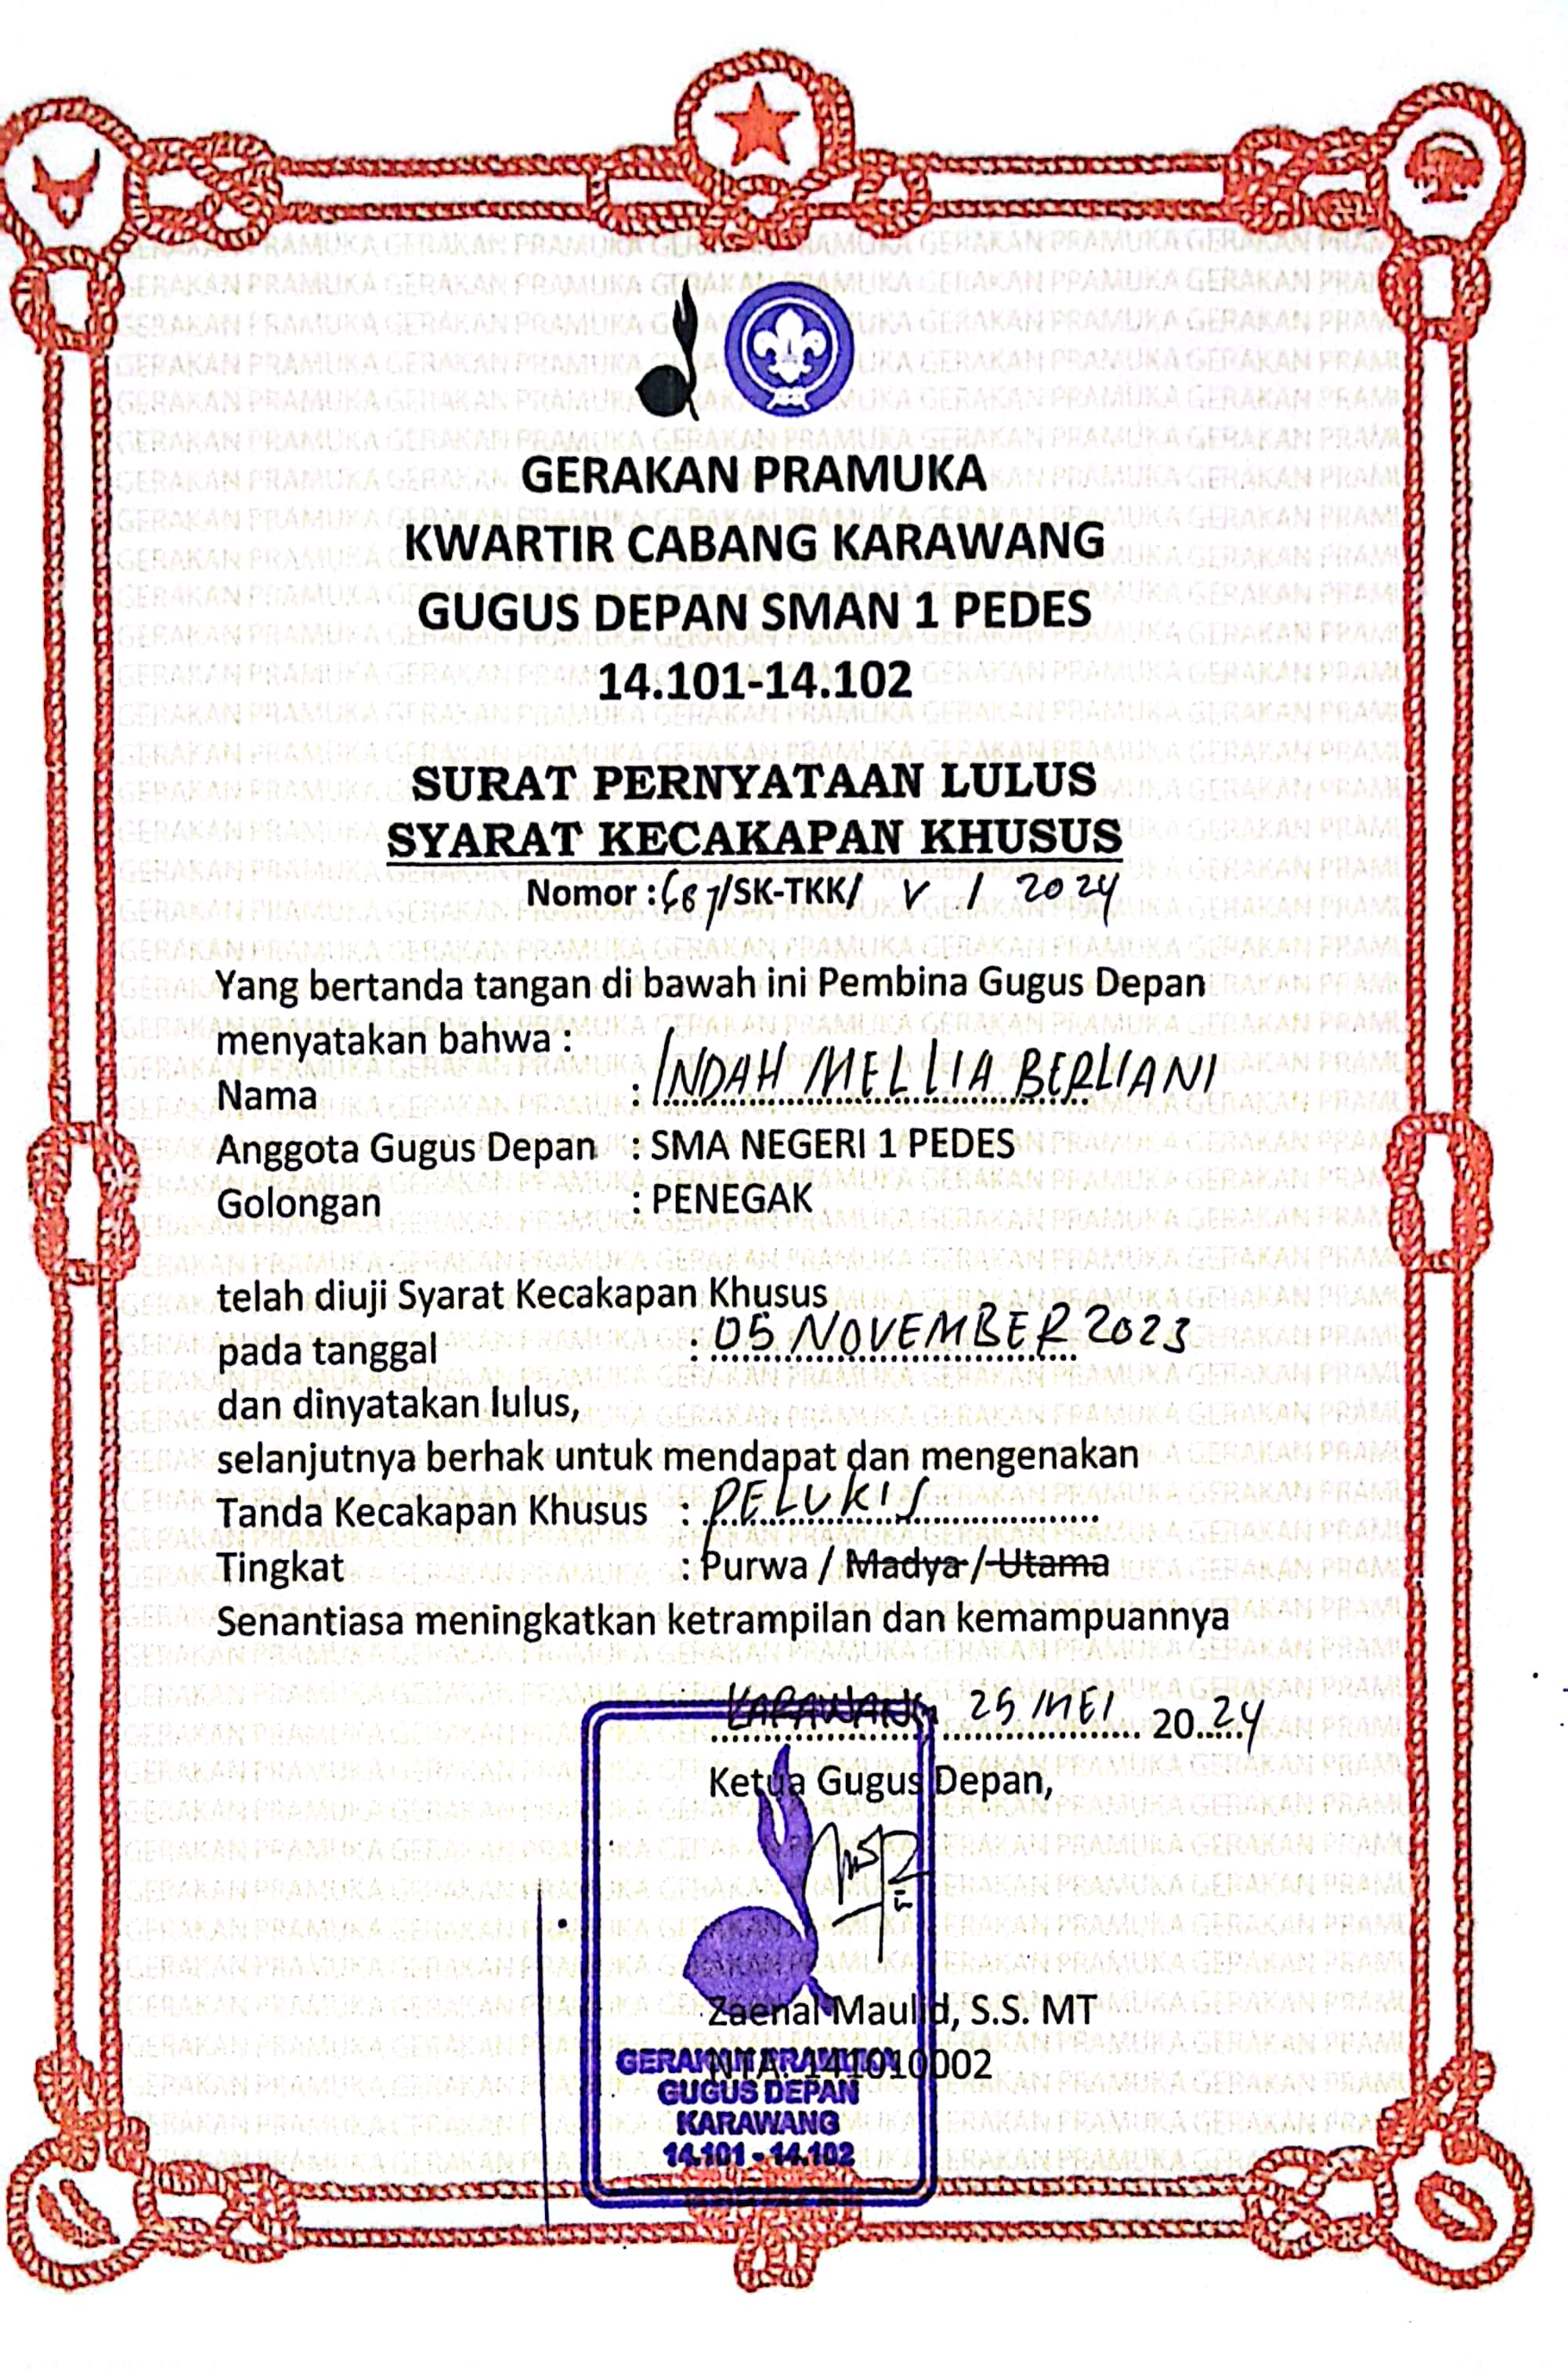 GERAKAN PRAMUKA
KWARTIR CABANG KARAWANG
GUGUS DEPAN SMAN 1 PEDES
14.101-14.102
SURAT PERNYATAAN LULUS
SYARAT KECAKAPAN KHUSUS
Nomor : 687/SK-TKK/ V / 2024
Yang bertanda tangan di bawah ini Pembina Gugus Depan
menyatakan bahwa :
Nama : INDAH MELLIA BERLIANI
Anggota Gugus Depan : SMA NEGERI 1 PEDES
Golongan : PENEGAK
telah diuji Syarat Kecakapan Khusus
pada tanggal : 05 NOVEMBER 2023
dan dinyatakan lulus,
selanjutnya berhak untuk mendapat dan mengenakan
Tanda Kecakapan Khusus : PELUKIS
Tingkat : Purwa / Madya / Utama
Senantiasa meningkatkan ketrampilan dan kemampuannya
KARAWANG, 25 MEI 2024
Ketua Gugus Depan,
Zaenal Maulid, S.S. MT
NTA. 141010002
GERAKAN PRAMUKA
GUGUS DEPAN
KARAWANG
14.101 - 14.102